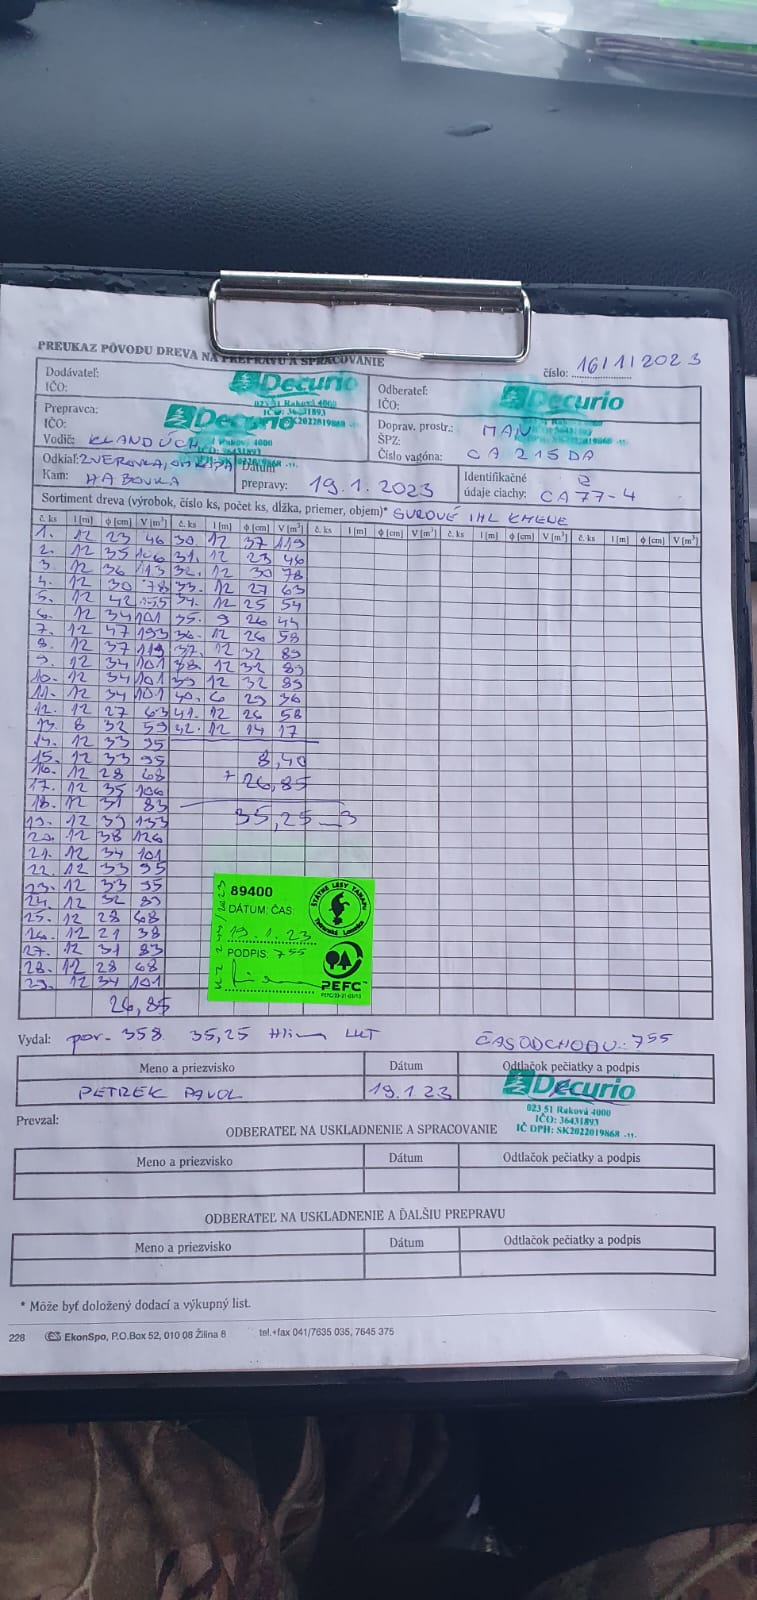 PREUKAZ PÔVODU DREVA NA PREPRAVU A SPRACOVANIE
číslo: 16/1/2023
Dodávateľ:
IČO:
Decurio
023 51 Raková 4000
IČO: 36431893
Odberateľ:
IČO:
Decurio
Prepravca:
IČO:
Decurio
Vodič: KLANDUCH
Doprav. prostr.: MAN
ŠPZ:
Číslo vagóna: CA 215DA
Odkiaľ: ZVEROVKA,
Kam: HABOVKA
Dátum
prepravy: 19.1.2023
Identifikačné
údaje ciachy: CA77-4
Sortiment dreva (výrobok, číslo ks, počet ks, dĺžka, priemer, objem)* SUROVÉ IHL KMENE
č. ks l [m] ϕ [cm] V [m³] č. ks l [m] ϕ [cm] V [m³] č. ks l [m] ϕ [cm] V [m³] č. ks l [m] ϕ [cm] V [m³] č. ks l [m] ϕ [cm] V [m³]
1. 12 23 46 30 12 37 119
2. 12 35 106 31. 12 23 46
3. 12 36 113 32. 12 30 78
4. 12 30 78 33. 12 27 63
5. 12 42 155 34. 12 25 54
6. 12 34 101 35. 9 26 44
7. 12 47 193 36. 12 26 58
8. 12 37 119 37. 12 32 89
9. 12 34 101 38. 12 32 89
10. 12 34 101 39 12 32 89
11. 12 34 101 40. 6 29 36
12. 12 27 63 41. 12 26 58
13. 8 32 59 42. 12 14 17
14. 12 33 95
15. 12 33 95 8,40
16. 12 28 68 + 26,85
17. 12 35 106
18. 12 31 83 35,25
19. 12 39 133
20. 12 38 126
21. 12 34 101
22. 12 33 95
23. 12 33 95
24. 12 32 89
25. 12 28 68
26. 12 21 38
27. 12 31 83
28. 12 28 68
29. 12 34 101
26,85
89400
DÁTUM: ČAS:
19.1.23
PODPIS: 755
ŠTÁTNE LESY TANAPU
Tatranská Lomnica
PEFC™
Vydal: por- 358 35,25 LKT ČAS ODCHODU: 755
Meno a priezvisko Dátum Odtlačok pečiatky a podpis
PETREK PAVOL 19.1.23
Decurio
023 51 Raková 4000
IČO: 36431893
IČ DPH: SK2022019868 -11-
Prevzal:
ODBERATEĽ NA USKLADNENIE A SPRACOVANIE
Meno a priezvisko Dátum Odtlačok pečiatky a podpis
ODBERATEĽ NA USKLADNENIE A ĎALŠIU PREPRAVU
Meno a priezvisko Dátum Odtlačok pečiatky a podpis
* Môže byť doložený dodací a výkupný list.
228 EkonSpo, P.O.Box 52, 010 08 Žilina 8 tel.+fax 041/7635 035, 7645 375